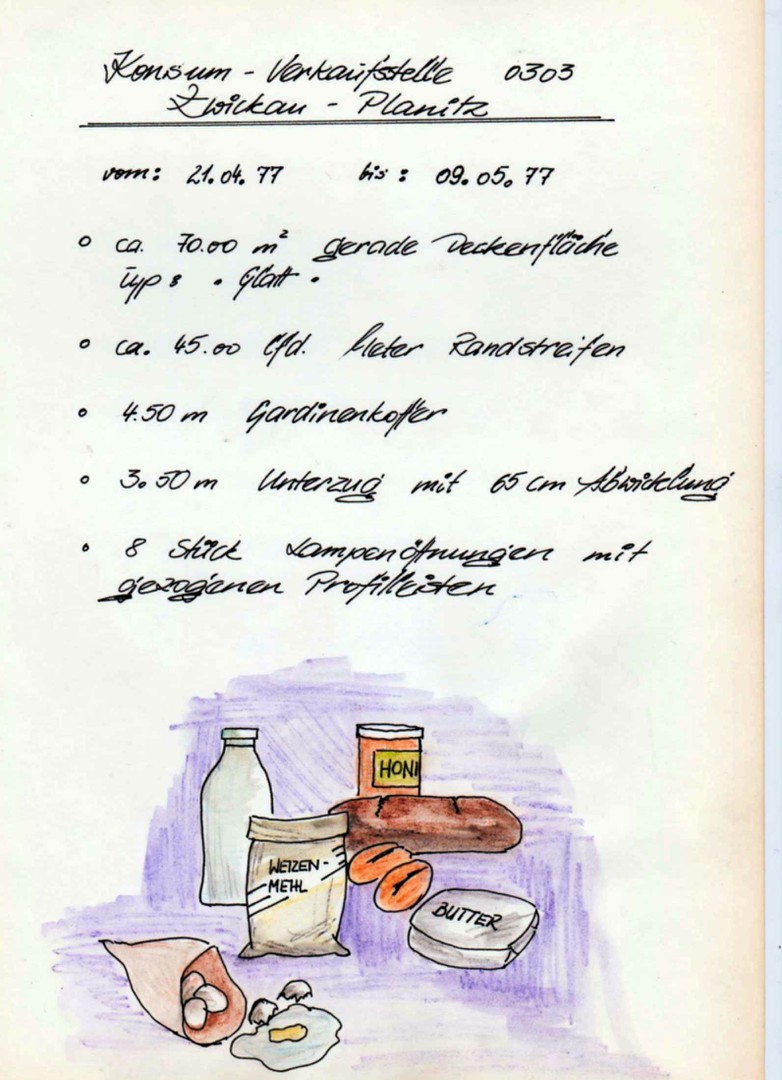 Konsum - Verkaufsstelle 0303
Zwickau - Planitz
vom: 21.04.77 bis: 09.05.77
ca. 70.00 m² gerade Deckenfläche
Typ: "Glatt"
ca. 45.00 lfd. Meter Randstreifen
4.50 m Gardinenkoffer
3.50 m Unterzug mit 65 cm Abwicklung
8 Stück Lampenöffnungen mit
gezogenen Profilleisten
HONI
WEIZEN-
MEHL
BUTTER